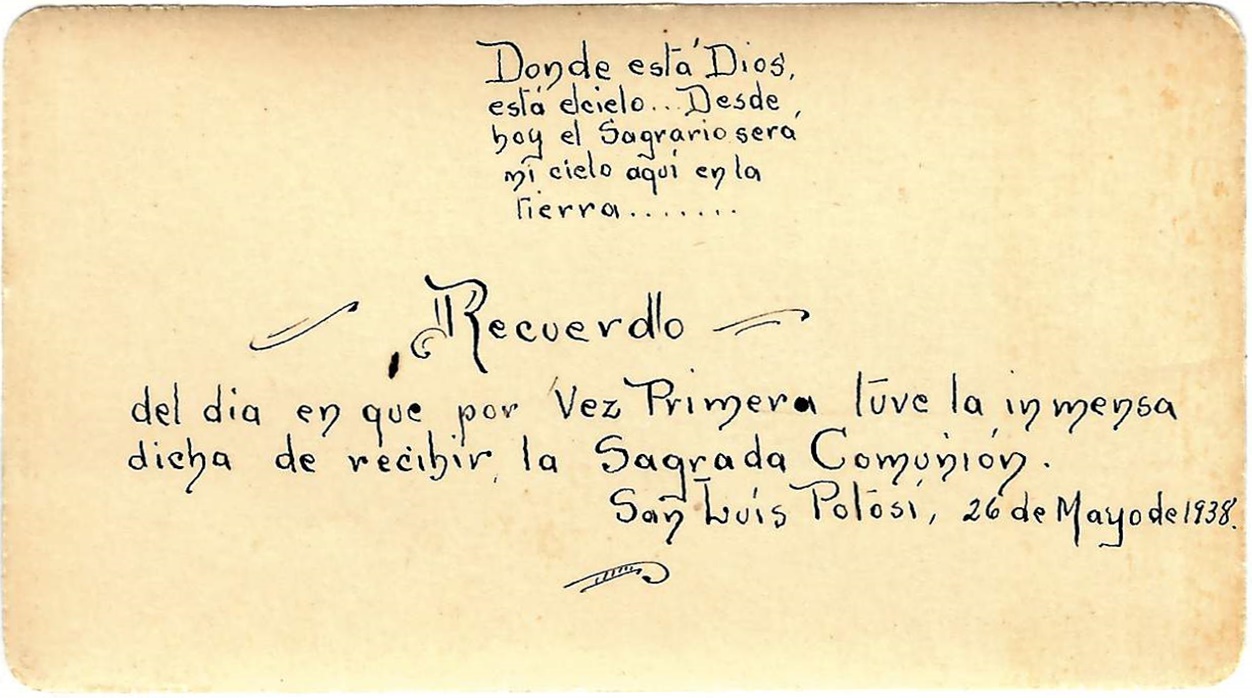 Donde está Dios,
está el cielo... Desde
hoy el Sagrario será
mi cielo aquí en la
Tierra.......
Recuerdo
del dia en que por Vez Primera tuve la inmensa
dicha de recibir la Sagrada Comunión.
San Luis Potosí, 26 de Mayo de 1938.